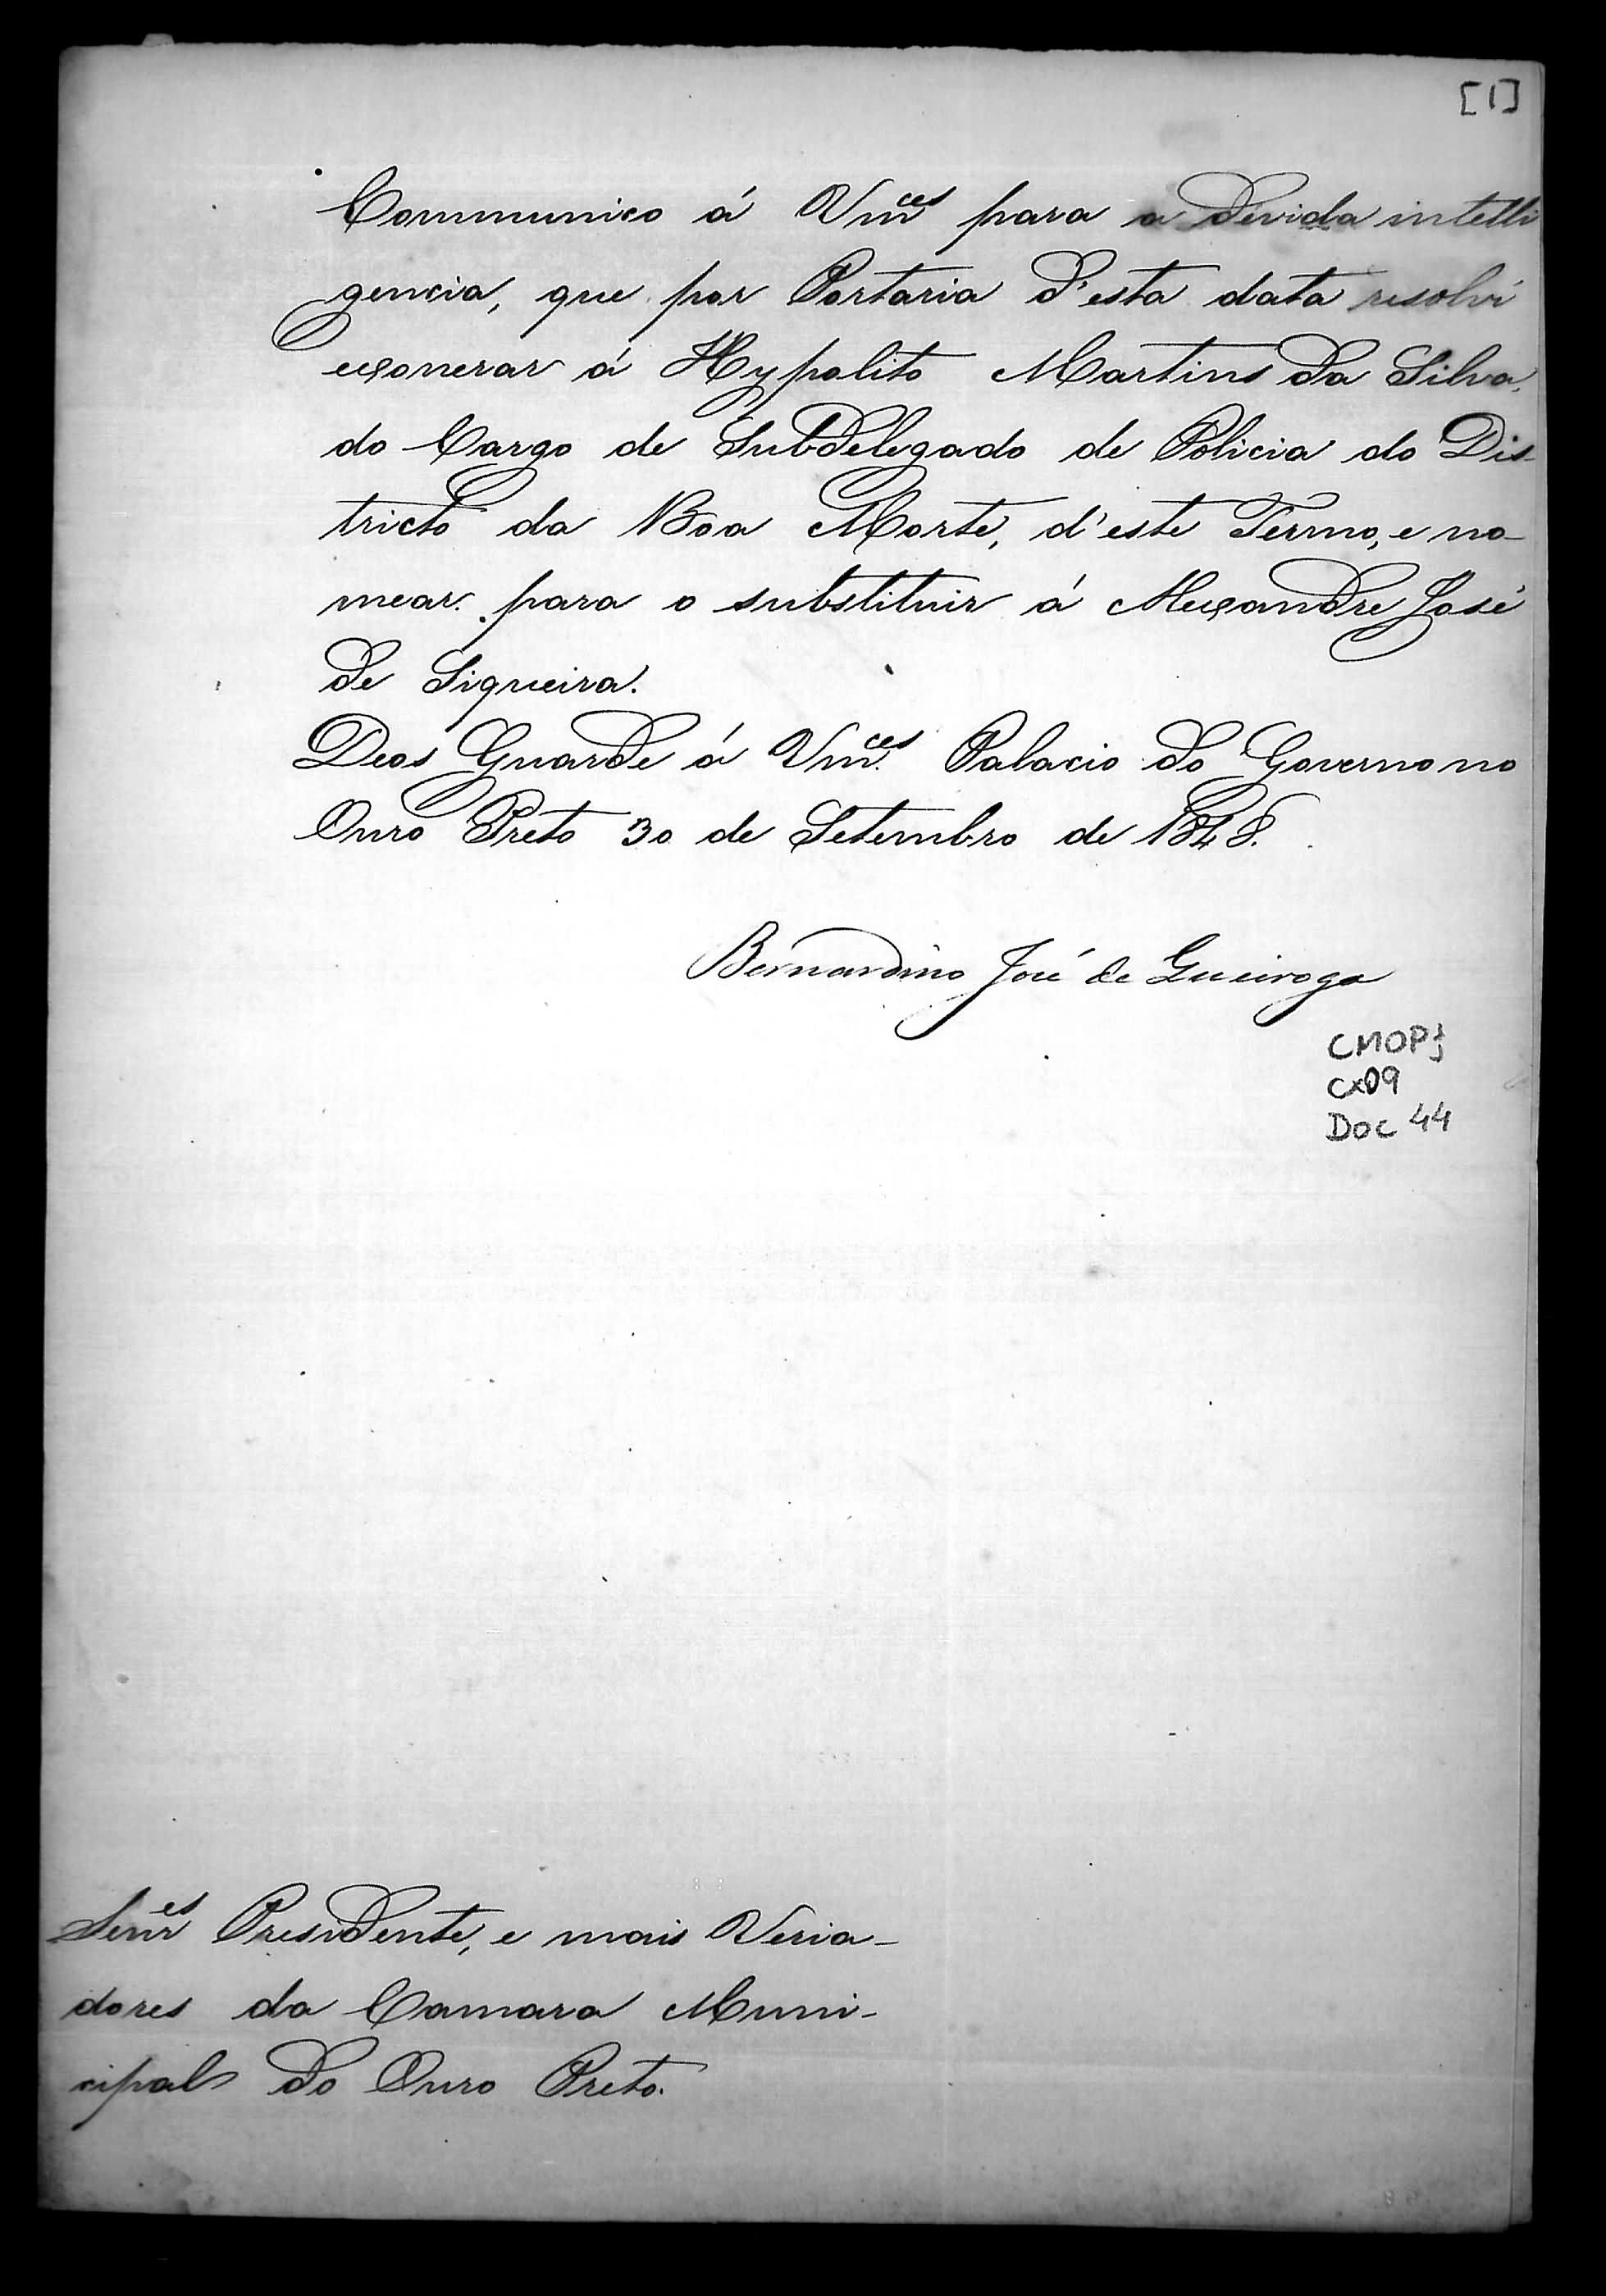 [1]
Communico á Vm.ces para a devida intelli
gencia, que por Portaria d'esta data resolvi
exonerar á Hypolito Martins da Silva,
do Cargo de Subdelegado de Policia do Dis-
tricto da Boa Morte, d'este Termo, e no-
mear para o substituir á Alexandre José
de Siqueira.
Deos Guarde á Vm.ces Palacio do Governo no
Ouro Preto 30 de Setembro de 1848.
Bernardino José de Queiroga
CMOP
Cx09
Doc 44
Senr.es Presidente, e mais Veria-
dores da Camara Muni-
cipal do Ouro Preto.